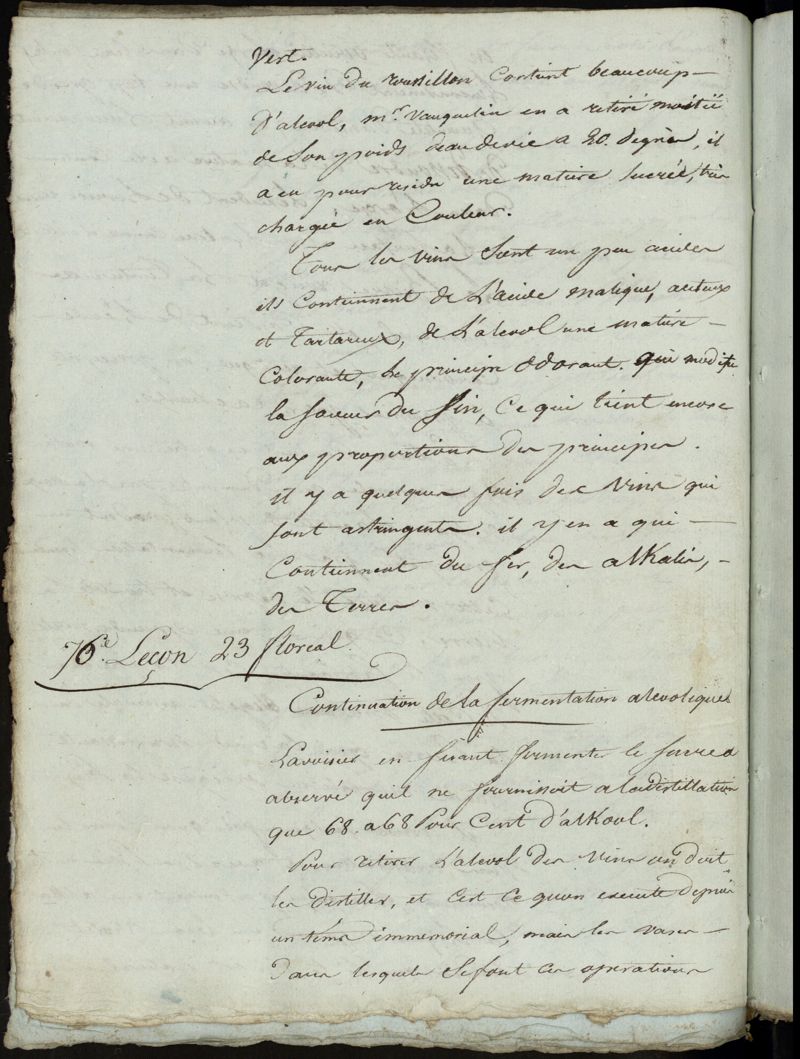 Vert.
Le vin du roussillon Contient beaucoup
D'alcool, mr. Vauquelin en a retiré moitié
de Son poids deau devie a 20. degrés, il
a eu pour residu une matiere sucrée, très
chargée en Couleur.
Tous les vins Sont un peu acides
ils Contiennent de L'acide malique, aceteux
et Tartareux, de L'alcool une matiere
Colorante, Le principe Odorant. qui modifie
la saveur du vin, Ce qui tient encore
aux proportions des principes.
il y a quelques fois des Vins qui
sont astringents. il y en a qui
Contiennent du fer, des alKalis,
des Terres.
76.e Leçon 23 floreal.
Continuation de la fermentation alcoolique
Lavoisier en fesant fermenter le sucre a
observé qu'il ne fournissoit a la distillation
que 68 a 68 Pour Cent d'alKool.
Pour retirer L'alcool des Vins on doit
les distiller, et C'est Ce qu'on execute depuis
un tems immemorial, mais les vases
dans lesquels Se font Ces operations